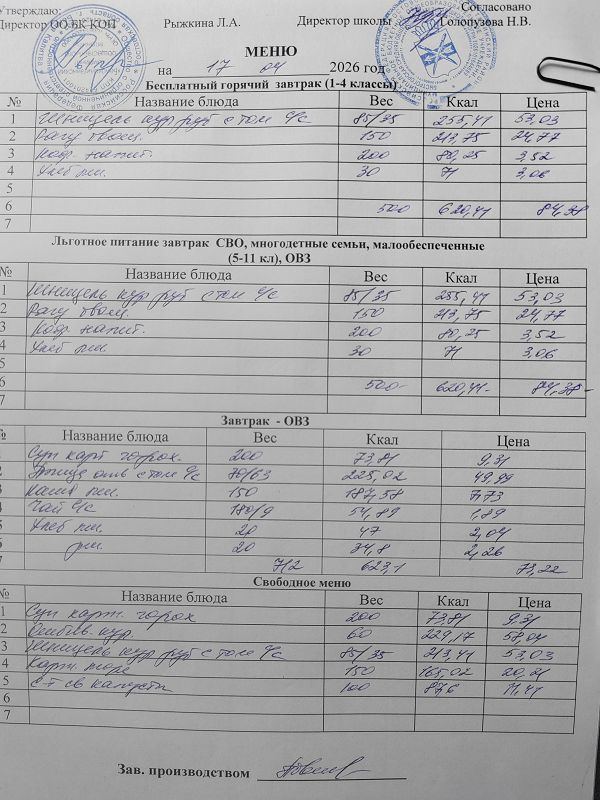 Утверждаю: Согласовано
Директор ОО БК КОП Рыжкина Л.А. Директор школы Голопузова Н.В.
МЕНЮ
на 17 04 2026 год
Бесплатный горячий завтрак (1-4 классы)
№ Название блюда Вес Ккал Цена
1 Шницель кур руб с том с/с 85/35 255,41 53,03
2 Рагу 150 213,75 24,77
3 Коф. напит. 200 80,25 3,52
4 Хлеб пш. 30 71 3,06
5
6 500 620,41 84,38
7
Льготное питание завтрак СВО, многодетные семьи, малообеспеченные
(5-11 кл), ОВЗ
№ Название блюда Вес Ккал Цена
1 Шницель кур руб с том с/с 85/35 255,41 53,03
2 Рагу 150 213,75 24,77
3 Коф. напит. 200 80,25 3,52
4 Хлеб пш. 30 71 3,06
5
6 500- 620,41- 84,38-
7
Завтрак - ОВЗ
№ Название блюда Вес Ккал Цена
Суп карт горох. 200 73,81 9,31
с том с/с 70/63 225,02 49,99
Каша пш. 150 187,58 7,73
Чай с/с 180/9 54,89 1,89
Хлеб пш. 20 47 2,04
рж. 20 34,8 2,26
712 623,1 73,22
Свободное меню
№ Название блюда Вес Ккал Цена
1 Суп карт. горох 200 73,81 9,31
2 кур 60 229,17 58,04
3 Шницель кур руб с том с/с 85/35 213,41 53,03
4 Карт. пюре 150 165,02 20,21
5 С-т св капусты 100 87,6 11,41
6
7
Зав. производством